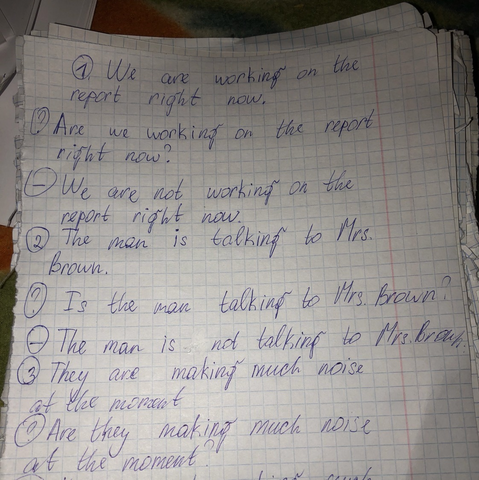 ① We are working on the
report right now.
? Are we working on the report
right now?
- We are not working on the
report right now.
② The man is talking to Mrs.
Brown.
? Is the man talking to Mrs. Brown?
- The man is not talking to Mrs. Brown.
③ They are making much noise
at the moment
? Are they making much noise
at the moment?